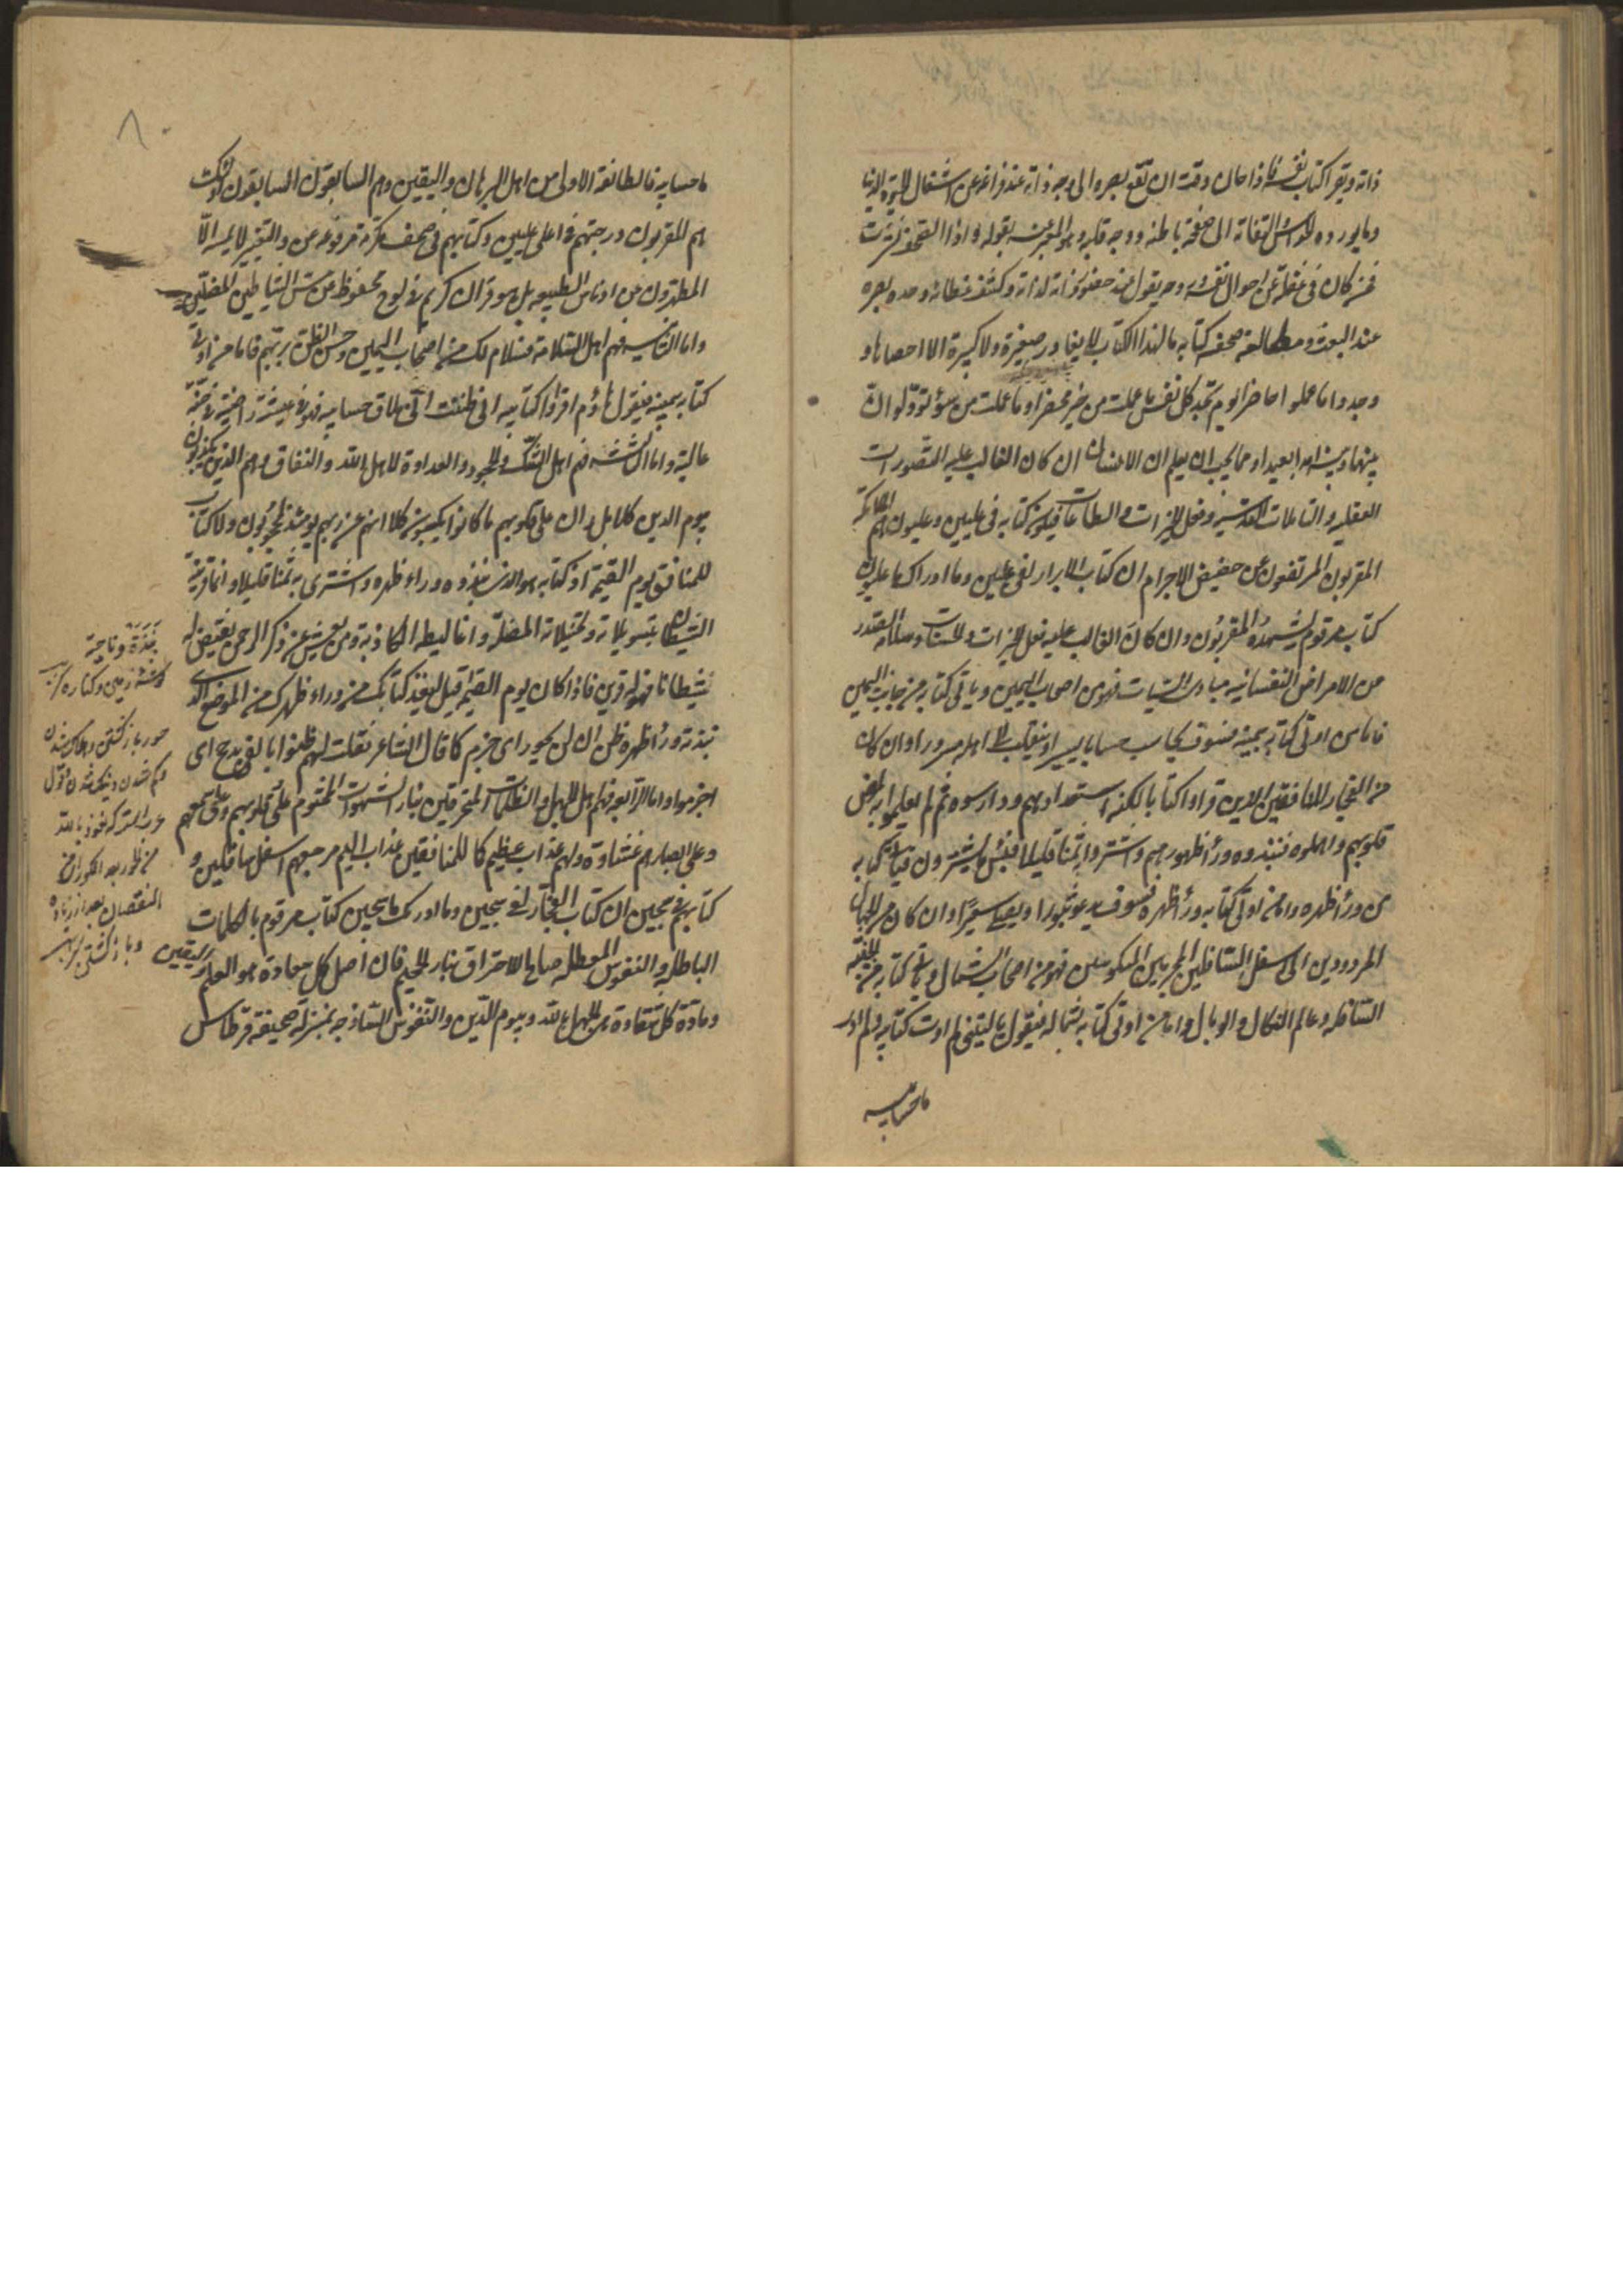 ذاته ويقرا كتاب نفسه فاذا حان وقت ان تقع بصره الى وجه ذاته عند فراغه عن اشتغال الحيوة الدنيا
وما يورده الحواس التفاته الى صفحة باطنه ووجه قلبه وهو المعبر عنه بقوله واذا الصحف نشرت
فمن كان في غفلة عن احوال نفسه وهو يقول عند حضور ذاته لذاته وكشف غطائه وحدة بصره
عند البعث ومطالعة صحف كتابه ما لهذا الكتاب لا يغادر صغيرة ولا كبيرة الا احصاها و
وجدوا ما عملوا حاضرا يوم تجد كل نفس ما عملت من خير محضرا وما عملت من سوء تود لو ان
بينها وبينه امدا بعيدا ومما يجب ان يعلم ان الانسان ان كان الغالب عليه التصورات
العقليه والتاملات القدسيه وفعل الخيرات والطاعات فيكون كتابه في عليين وعليون هم الملائكة
المقربون المرتفعون عن حضيض الاجرام ان كتاب الابرار لفى عليين وما ادراك ما عليون
كتاب مرقوم يشهده المقربون وان كان الغالب عليه فعل الخيرات والحسنات وسلامة الصدر
من الامراض النفسانيه مبادى السيات فهو من اصحاب اليمين وياتى كتابه من جانب اليمين
فاما من اوتى كتابه بيمينه فسوف يحاسب حسابا يسيرا وينقلب الى اهله مسرورا وان كان
من الفجار المنافقين الذين قراوا كتابا لكنه استعدادهم ودارسوه ثم لم يعملوا به لمرض
قلوبهم واهملوه فنبذوه وراء ظهورهم واشتروا به ثمنا قليلا فبئس ما يشترون فياتى كتابه
من وراء ظهره واما من اوتى كتابه وراء ظهره فسوف يدعو ثبورا ويصلى سعيرا وان كان من الجهال
المردودين الى اسفل السافلين المجرمين المنكوسين فهو من اصحاب الشمال وياتى كتابه من الجنبة
السافله وعالم النكال والوبال واما من اوتى كتابه بشماله فيقول يا ليتنى لم اوت كتابيه ولم ادر
ما حسابيه
٨
ما حسابيه فالطائفة الاولى من اهل البرهان واليقين وهم السابقون السابقون اولئك
هم المقربون ودرجتهم في اعلى عليين وكتابهم في صحف مكرمة مرفوعه عن والتغير لا يمسه الا
المطهرون عن ادناس الطبيعه بل هو قران كريم في لوح محفوظ عن مس الشياطين المضلين
واما الثانيه فهم اهل السلامة فسلام لك من اصحاب اليمين وحسن الظن بربهم فاما من اوتى
كتابه بيمينه فيقول هاؤم اقرؤا كتابيه انى ظننت انى ملاق حسابيه فهو في عيشة راضية في جنة
عالية واما الثالثه فهم اهل الشك والجحود والعداوة لاهل الله والنفاق وهم الذين يكذبون
بيوم الدين كلا بل ران على قلوبهم ما كانوا يكسبون كلا انهم عن ربهم يومئذ لمحجوبون ولا كتاب
للمنافق يوم القيمة اذ كتابه هو الذى نبذوه وراء ظهره واشترى به ثمنا قليلا وانما قرينه
الشيطان بتسويلاته وتخييلاته المضلة واغاليطه الكاذبة ومن يعش عن ذكر الرحمن نقيض له
شيطانا فهو له قرين فاذا كان يوم القيمة قيل له خذ كتابك من وراء ظهرك من الموضع الذى
نبذته وراء ظهره ظن ان لن يحور اى جزم كما قال الشاعر فقلت لهم ظنوا بالفى مدجج اى
اجزموا واما الرابعه فهم اهل الجهل والظلمات المحترقين بنار الشهوات المختوم على قلوبهم وعلى سمعهم
وعلى ابصارهم غشاوة ولهم عذاب عظيم كما للمنافقين عذاب اليم مرجعهم اسفل سافلين و
كتابهم في سجين ان كتاب الفجار لفى سجين وما ادريك ما سجين كتاب مرقوم بالكلمات
الباطلة والنفوس المعطله صالح للاحتراق بنار الجحيم فان اصل كل سعادة هو العلم واليقين
ومادة كل شقاوة هى الجهل بالله وبيوم الدين والنفوس الساذجه بمنزلة صحيفة قرطاس
نبذة وناحية
كوشه زمين وكناره
حور باز كشتن وهلاك شدن
وكم شدن
نعوذ بالله
من الحور بعد الكور اى من
النقصان بعد از زياده
وباز كشتن